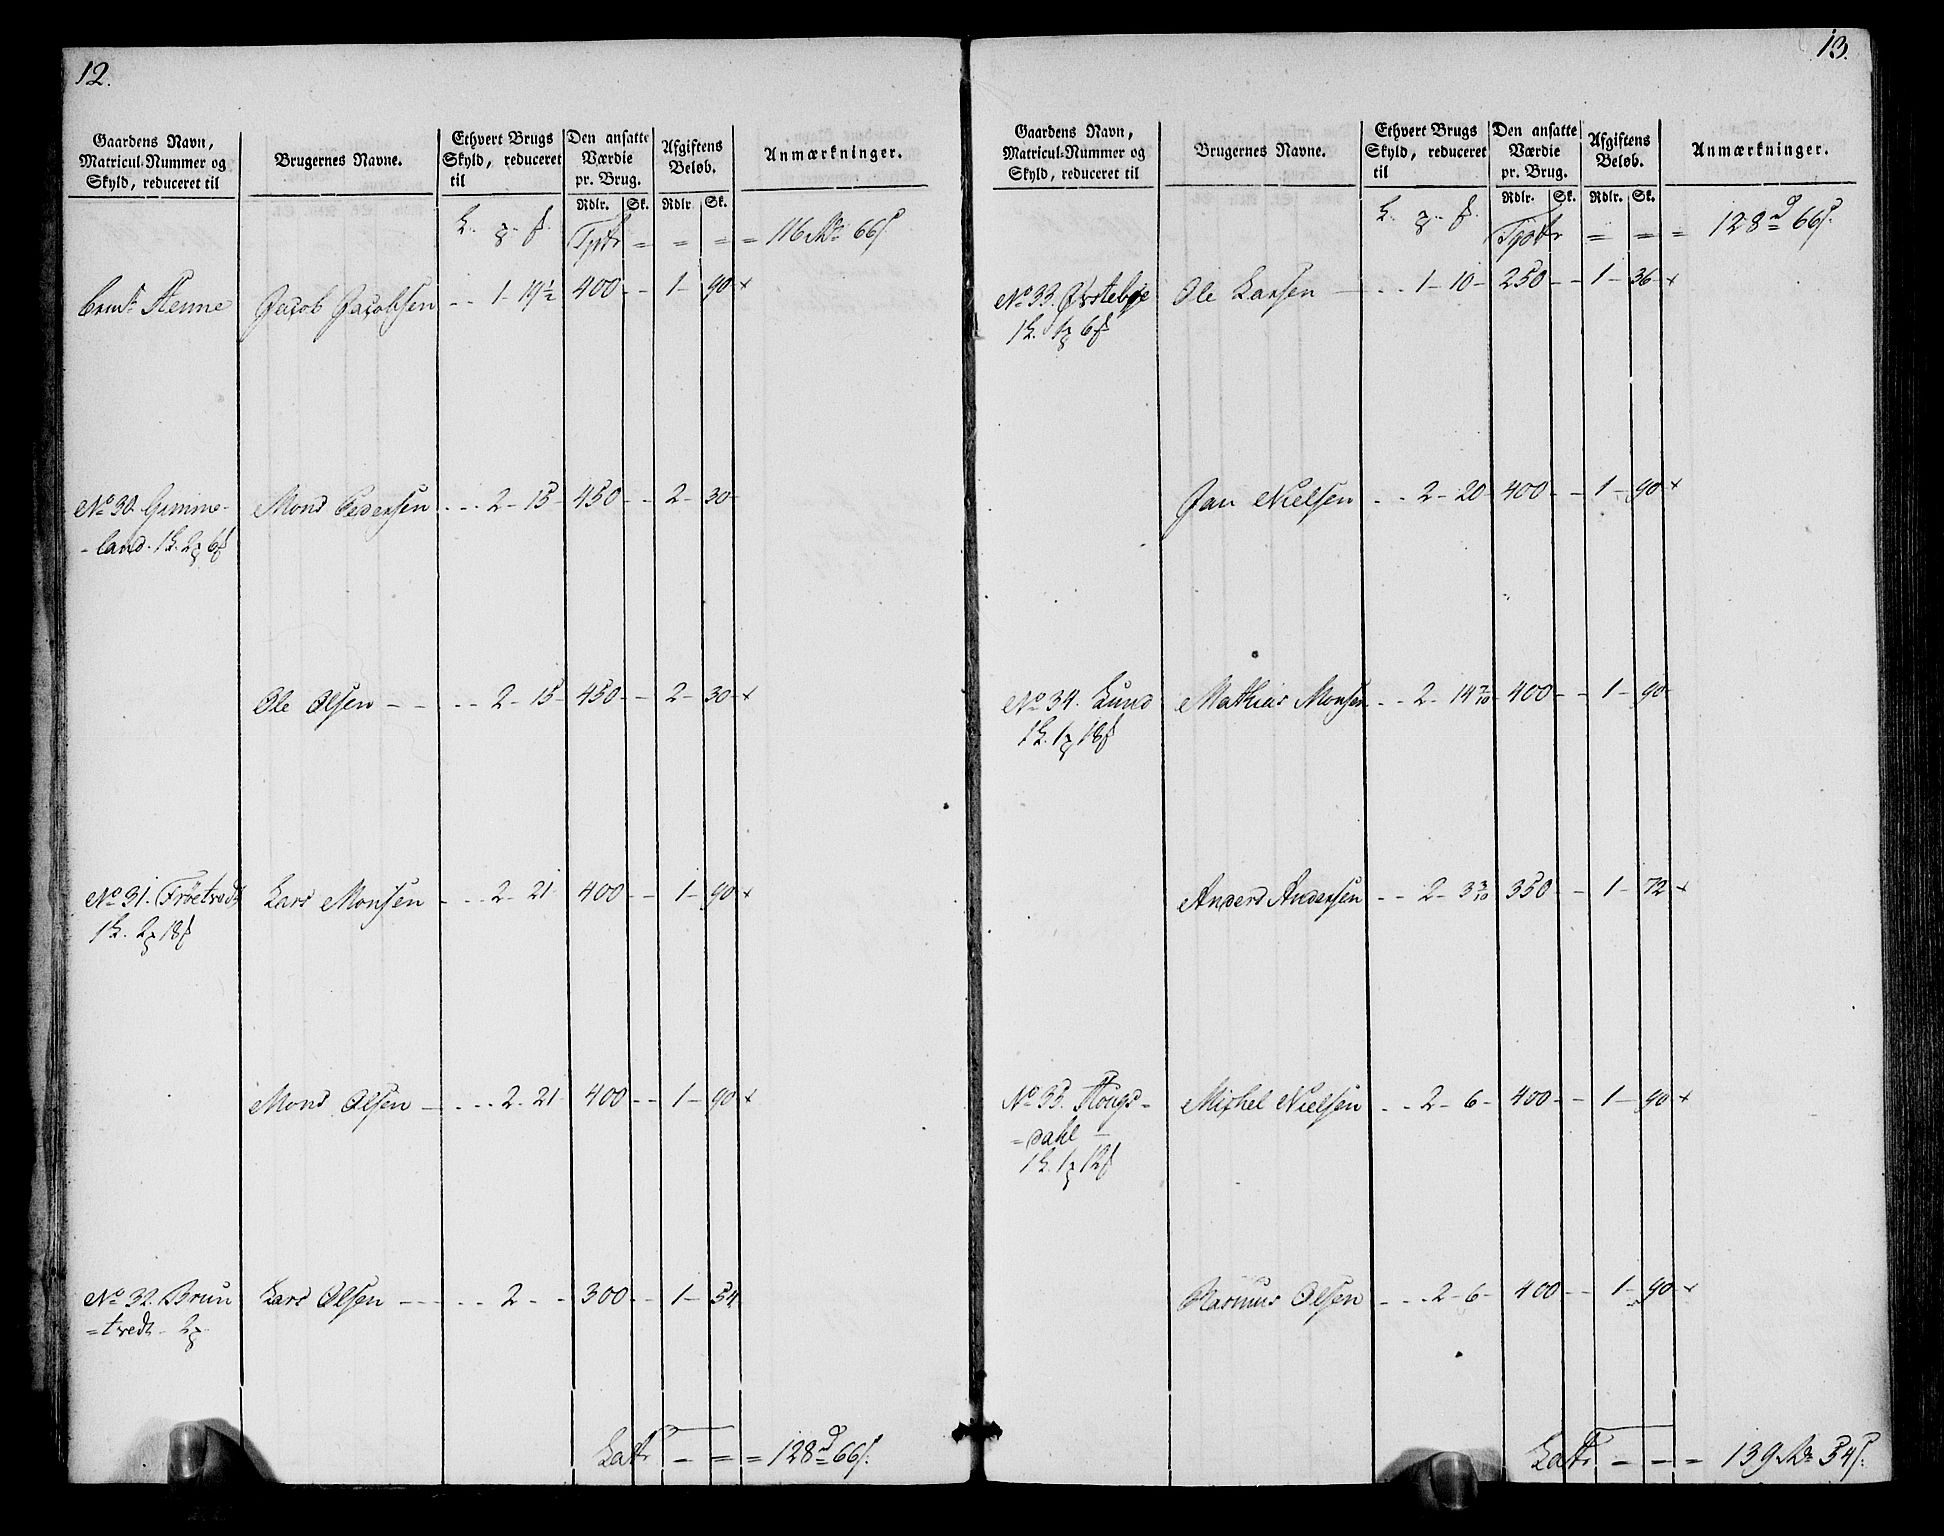 12.
Gaardens Navn, Matricul-Nummer og Skyld, reduceret til
Brugernes Navne.
Ethvert Brugs Skyld, reduceret til
Den ansatte Værdie pr. Brug.
Afgiftens Beløb.
Anmærkninger.
Rdlr. Sk. Rdlr Sk.
Tpstr = = = = 116 Rd 66 s
Henne Jacob Jacobsen - - 1 - 19½ 400 - - 1 - 90 x
No 30. Gimme- Mons Pedersen - - - 2 - 15 - 450 - - 2 - 30 -
-land. 1 2 6
Ole Olsen - - - - - 2 - 15 - 450 - - 2 - 30 - x
No 31. Frøetvedt Lars Monsen - - - 2 - 21 400 - - 1 - 90 x
1 2 18
Mons Olsen - - - - 2 - 21 - 400 - - 1 - 90 x
No 32. Brun Lars Olsen - - - - - 2 - - 300 - - 1 - 54
=tvedt - 2
Latr - = = 128 d 66 s.
13.
Gaardens Navn, Matricul-Nummer og Skyld, reduceret til
Brugernes Navne.
Ethvert Brugs Skyld, reduceret til
Den ansatte Værdie pr. Brug.
Afgiftens Beløb.
Anmærkninger.
Rdlr. Sk. Rdlr. Sk.
Tpstr = = = 128 d 66 s.
No 33. Ørstebøe Ole Larsen - - - 1 - 10 - 250 - - 1 - 36 - x
1 1 6
Jan Nielsen - - 2 - 20 400 - - 1 - 90 x
No 34. Lund Mathias Monsen - - 2 - 14 7/10 400 - - 1 - 90 -
1 1 18
Anders Andersen - - 2 - 3 3/10 350 - - 1 - 72 x
No 35. Hougs- Michel Nielsen - - 2 - 6 - 400 - - 1 - 90 x
=dahl -
1 1 12
Rasmus Olsen - - - 2 - 6 - 400 - - 1 - 90 x
Latr - - = 139 Rd 54 s.